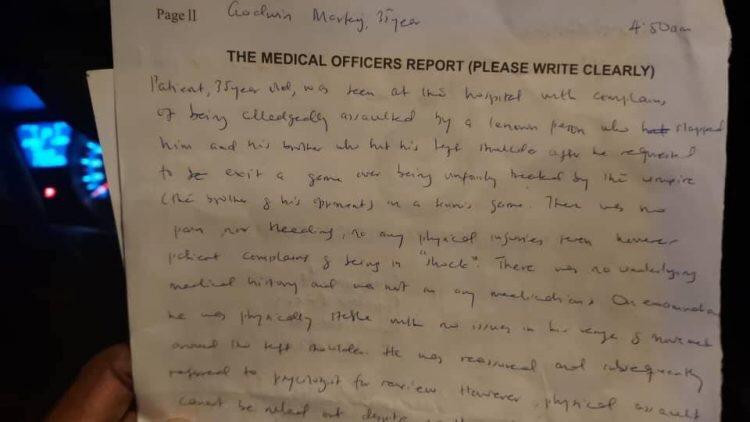 Page II Godwin Martey, 35 year 4:50am
THE MEDICAL OFFICERS REPORT (PLEASE WRITE CLEARLY)
Patient, 35 year old, was seen at this hospital with complains
of being alledgedly assaulted by a known person who slapped
him and his brother who hit his left shoulder after he requested
to exit a game over being unfairly treated by the umpire
(the brother of his opponent) in a tennis game. There was no
pain nor bleeding, no any physical injuries seen however
patient complains of being in "shock". There was no underlying
medical history and was not on any medications. On examination
he was physically stable with no issues in his range of movement
around the left shoulder. He was reassured and subsequently
referred to psycologist for review. However, physical assault
cannot be ruled out despite